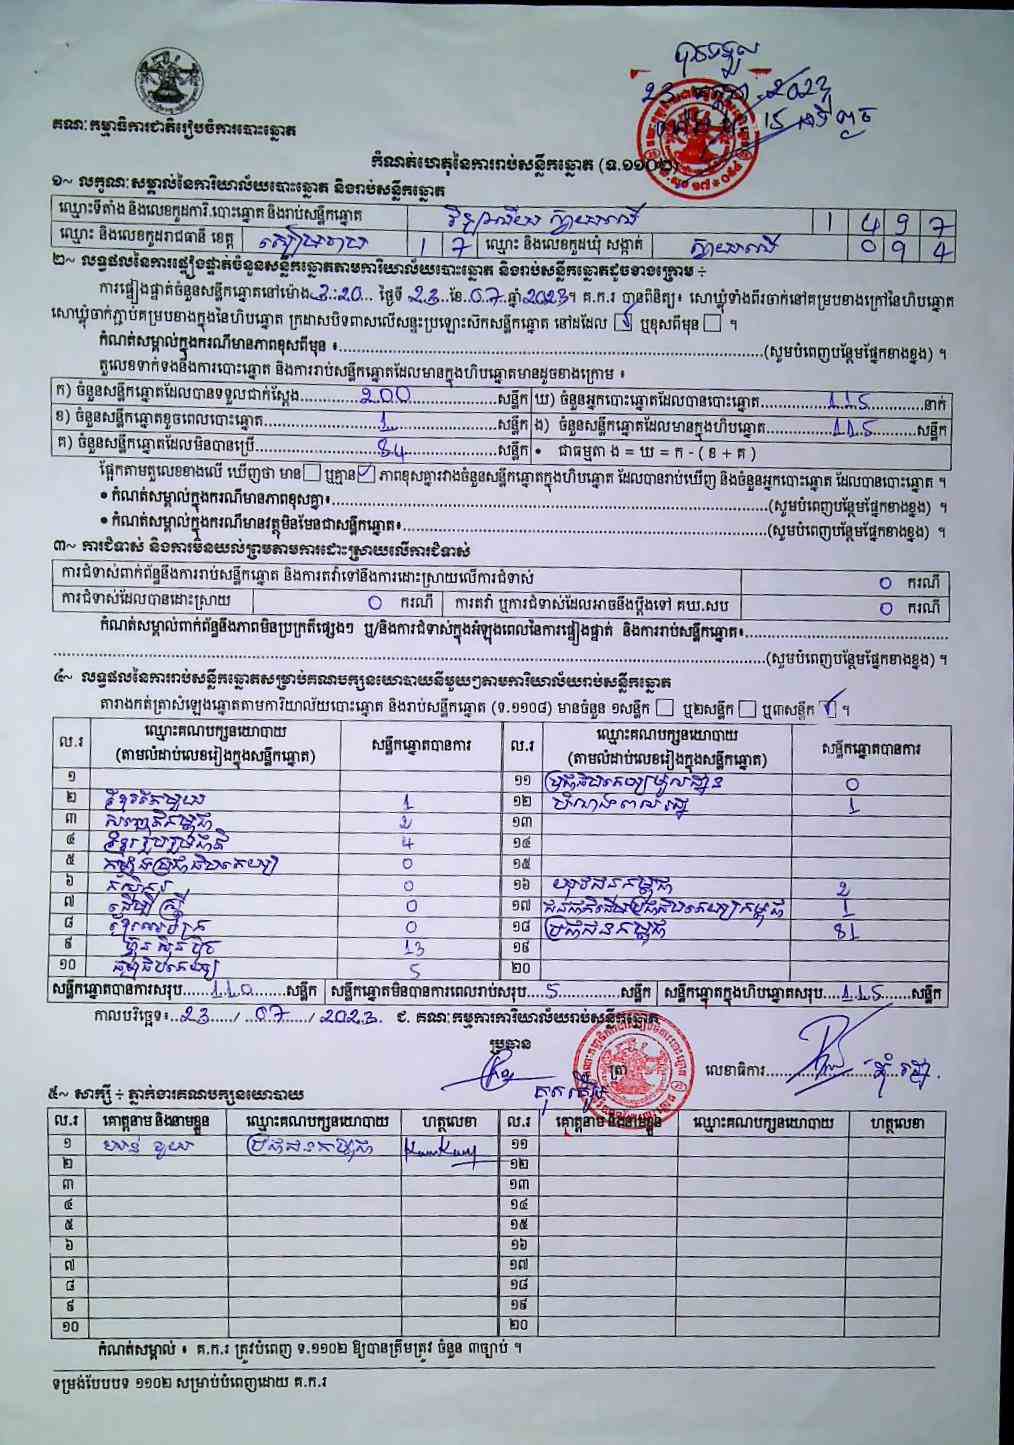 បានទទួល
គណៈកម្មាធិការជាតិរៀបចំការបោះឆ្នោត
កំណត់ហេតុនៃការរាប់សន្លឹកឆ្នោត (ទ.១១០២)
១~ លក្ខណៈសម្គាល់នៃការិយាល័យបោះឆ្នោត និងរាប់សន្លឹកឆ្នោត
ឈ្មោះទីតាំង និងលេខកូដការិ.បោះឆ្នោត និងរាប់សន្លឹកឆ្នោត 1 4 9 7
ឈ្មោះ និងលេខកូដរាជធានី ខេត្ត សៀមរាប 1 7 ឈ្មោះ និងលេខកូដឃុំ សង្កាត់ ស្វាយលើ 0 9 4
២~ លទ្ធផលនៃការផ្ទៀងផ្ទាត់ចំនួនសន្លឹកឆ្នោតតាមការិយាល័យបោះឆ្នោត និងរាប់សន្លឹកឆ្នោតដូចខាងក្រោម ÷
ការផ្ទៀងផ្ទាត់ចំនួនសន្លឹកឆ្នោតនៅម៉ោង 3:20 ថ្ងៃទី 23 ខែ 07 ឆ្នាំ 2023។ គ.ក.រ បានពិនិត្យ៖ សោឃ្លុំទាំងពីរចាក់នៅគម្របខាងក្រៅនៃហិបឆ្នោត
សោឃ្លុំចាក់ភ្ជាប់គម្របខាងក្នុងនៃហិបឆ្នោត ក្រដាសបិទពាសលើសន្ទះប្រឡោះសិកសន្លឹកឆ្នោត នៅដដែល ☑ ឬខុសពីមុន ☐ ។
កំណត់សម្គាល់ក្នុងករណីមានភាពខុសពីមុន ៖...(សូមបំពេញបន្ថែមផ្នែកខាងខ្នង) ។
តួលេខទាក់ទងនឹងការបោះឆ្នោត និងការរាប់សន្លឹកឆ្នោតដែលមានក្នុងហិបឆ្នោតមានដូចខាងក្រោម ៖
ក) ចំនួនសន្លឹកឆ្នោតដែលបានទទួលជាក់ស្តែង...200...សន្លឹក ឃ) ចំនួនអ្នកបោះឆ្នោតដែលបានបោះឆ្នោត...115...នាក់
ខ) ចំនួនសន្លឹកឆ្នោតខូចពេលបោះឆ្នោត...1...សន្លឹក ង) ចំនួនសន្លឹកឆ្នោតដែលមានក្នុងហិបឆ្នោត...115...សន្លឹក
គ) ចំនួនសន្លឹកឆ្នោតដែលមិនបានប្រើ...84...សន្លឹក • ជាធម្មតា ង = ឃ = ក - ( ខ + គ )
ផ្អែកតាមតួលេខខាងលើ ឃើញថា មាន ☐ ឬគ្មាន ☑ ភាពខុសគ្នារវាងចំនួនសន្លឹកឆ្នោតក្នុងហិបឆ្នោត ដែលបានរាប់ឃើញ និងចំនួនអ្នកបោះឆ្នោត ដែលបានបោះឆ្នោត ។
• កំណត់សម្គាល់ក្នុងករណីមានភាពខុសគ្នា៖...(សូមបំពេញបន្ថែមផ្នែកខាងខ្នង) ។
• កំណត់សម្គាល់ក្នុងករណីមានវត្ថុមិនមែនជាសន្លឹកឆ្នោត៖...(សូមបំពេញបន្ថែមផ្នែកខាងខ្នង) ។
៣~ ការជំទាស់ និងការមិនយល់ព្រមតាមការដោះស្រាយលើការជំទាស់
ការជំទាស់ពាក់ព័ន្ធនឹងការរាប់សន្លឹកឆ្នោត និងការតវ៉ាទៅនឹងការដោះស្រាយលើការជំទាស់ 0 ករណី
ការជំទាស់ដែលបានដោះស្រាយ 0 ករណី ការតវ៉ា ឬការជំទាស់ដែលអាចនឹងប្តឹងទៅ គឃ.សប 0 ករណី
កំណត់សម្គាល់ពាក់ព័ន្ធនឹងភាពមិនប្រក្រតីផ្សេងៗ ឬ/និងការជំទាស់ក្នុងអំឡុងពេលនៃការផ្ទៀងផ្ទាត់ និងការរាប់សន្លឹកឆ្នោត៖...
...(សូមបំពេញបន្ថែមផ្នែកខាងខ្នង) ។
៤~ លទ្ធផលនៃការរាប់សន្លឹកឆ្នោតសម្រាប់គណបក្សនយោបាយនីមួយៗតាមការិយាល័យរាប់សន្លឹកឆ្នោត
តារាងកត់ត្រាសំឡេងឆ្នោតតាមការិយាល័យបោះឆ្នោត និងរាប់សន្លឹកឆ្នោត (ទ.១១០៨) មានចំនួន ១សន្លឹក ☐ ឬ២សន្លឹក ☐ ឬ៣សន្លឹក ☑ ។
ល.រ ឈ្មោះគណបក្សនយោបាយ (តាមលំដាប់លេខរៀងក្នុងសន្លឹកឆ្នោត) សន្លឹកឆ្នោតបានការ ល.រ ឈ្មោះគណបក្សនយោបាយ (តាមលំដាប់លេខរៀងក្នុងសន្លឹកឆ្នោត) សន្លឹកឆ្នោតបានការ
១ ១១ 0
២ ខ្មែរតែមួយ 1 ១២ 1
៣ សញ្ជាតិកម្ពុជា 2 ១៣
៤ ខ្មែររួបរួមជាតិ 4 ១៤
៥ 0 ១៥
៦ កសិករ 0 ១៦ យុវជនកម្ពុជា 2
៧ ដើម្បីស្ត្រី 0 ១៧ 1
៨ 0 ១៨ ប្រជាជនកម្ពុជា 81
៩ ហ្វ៊ុនស៊ិនប៉ិច 13 ១៩
១០ 5 ២០
សន្លឹកឆ្នោតបានការសរុប...110...សន្លឹក សន្លឹកឆ្នោតមិនបានការពេលរាប់សរុប...5...សន្លឹក សន្លឹកឆ្នោតក្នុងហិបឆ្នោតសរុប...115...សន្លឹក
កាលបរិច្ឆេទ៖ 23 / 07 / 2023 ជ. គណៈកម្មការការិយាល័យរាប់សន្លឹកឆ្នោត
ប្រធាន ត្រា លេខាធិការ
៥~ សាក្សី ÷ ភ្នាក់ងារគណបក្សនយោបាយ
ល.រ គោត្តនាម និងនាមខ្លួន ឈ្មោះគណបក្សនយោបាយ ហត្ថលេខា ល.រ គោត្តនាម និងនាមខ្លួន ឈ្មោះគណបក្សនយោបាយ ហត្ថលេខា
១ ប្រជាជនកម្ពុជា ១១
២ ១២
៣ ១៣
៤ ១៤
៥ ១៥
៦ ១៦
៧ ១៧
៨ ១៨
៩ ១៩
១០ ២០
កំណត់សម្គាល់ ៖ គ.ក.រ ត្រូវបំពេញ ទ.១១០២ ឱ្យបានត្រឹមត្រូវ ចំនួន ៣ច្បាប់ ។
ទម្រង់បែបបទ ១១០២ សម្រាប់បំពេញដោយ គ.ក.រ